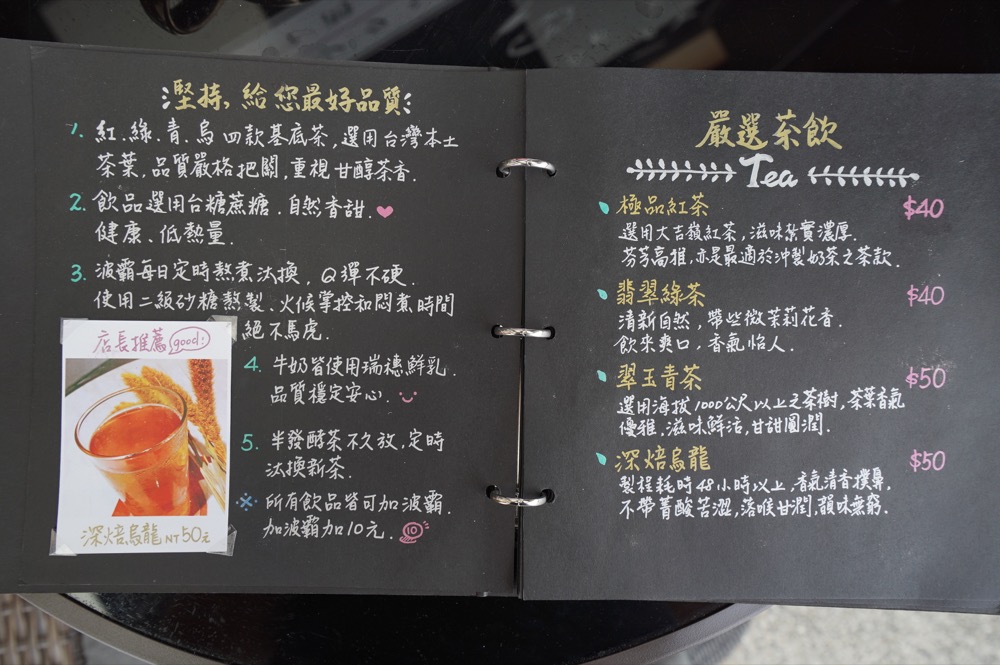 堅持,給您最好品質
1. 紅.綠.青.烏 四款基底茶,選用台灣本土
茶葉,品質嚴格把關,重視甘醇茶香.
2. 飲品選用台糖蔗糖.自然香甜.
健康、低熱量.
3. 波霸每日定時熬煮汰換,Q彈不硬.
使用二級砂糖熬製、火候掌控和悶煮時間
絕不馬虎.
4. 牛奶皆使用瑞穗鮮乳.
品質穩定安心.
5. 半發酵茶不久放,定時
汰換新茶.
※ 所有飲品皆可加波霸.
加波霸加10元. 10
店長推薦 good!
深焙烏龍 NT 50元
嚴選茶飲
Tea
極品紅茶 $40
選用大吉嶺紅茶,滋味紮實濃厚.
芬芳高雅,亦是最適於沖製奶茶之茶款.
翡翠綠茶 $40
清新自然,帶些微茉莉花香.
飲來爽口,香氣怡人.
翠玉青茶 $50
選用海拔1000公尺以上之茶樹,茶葉香氣
優雅.滋味鮮活,甘甜圓潤.
深焙烏龍 $50
製程耗時48小時以上,香氣清香撲鼻.
不帶菁酸苦澀,落喉甘潤,韻味無窮.